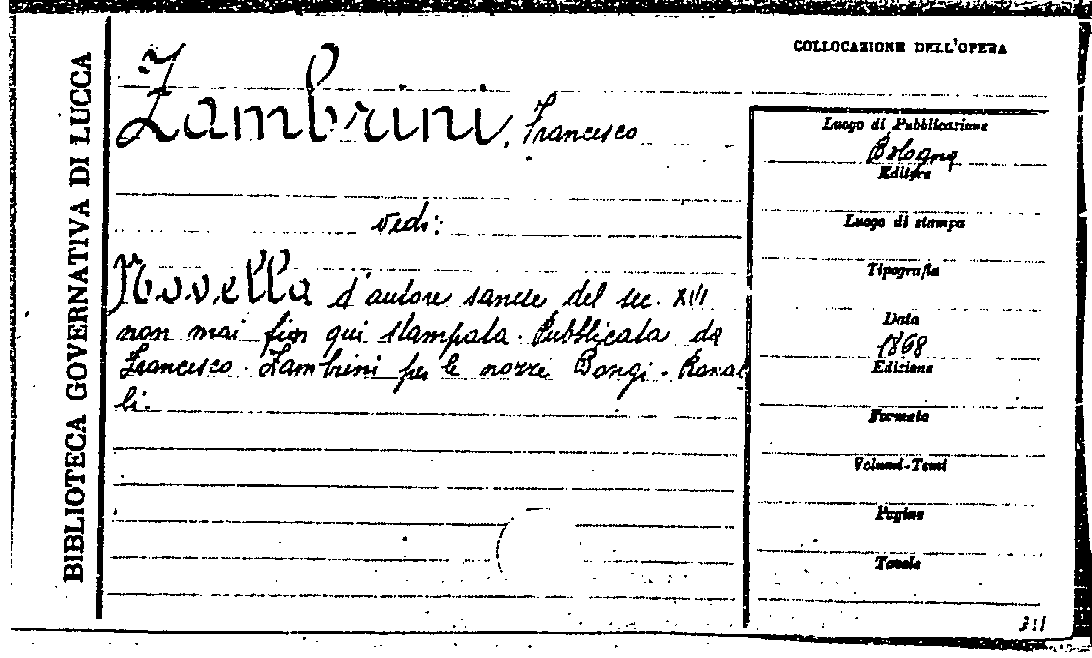 BIBLIOTECA GOVERNATIVA DI LUCCA
COLLOCAZIONE DELL'OPERA
Zambrini, Francesco
vedi:
Novella d'autore sanese del sec. XVII
non mai fin qui stampata. Pubblicata da
Francesco Zambrini per le nozze Bongi-Ranal
li.
Luogo di Pubblicazione
Bologna
Editore
Luogo di stampa
Tipografia
Data
1868
Edizione
Formato
Volumi-Tomi
Pagine
Tavole
311